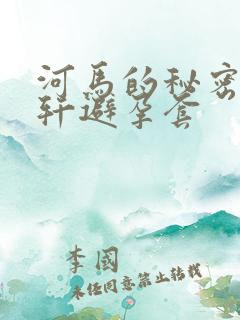 河马的秘密
轩避孕套
李国
未经同意禁止转载